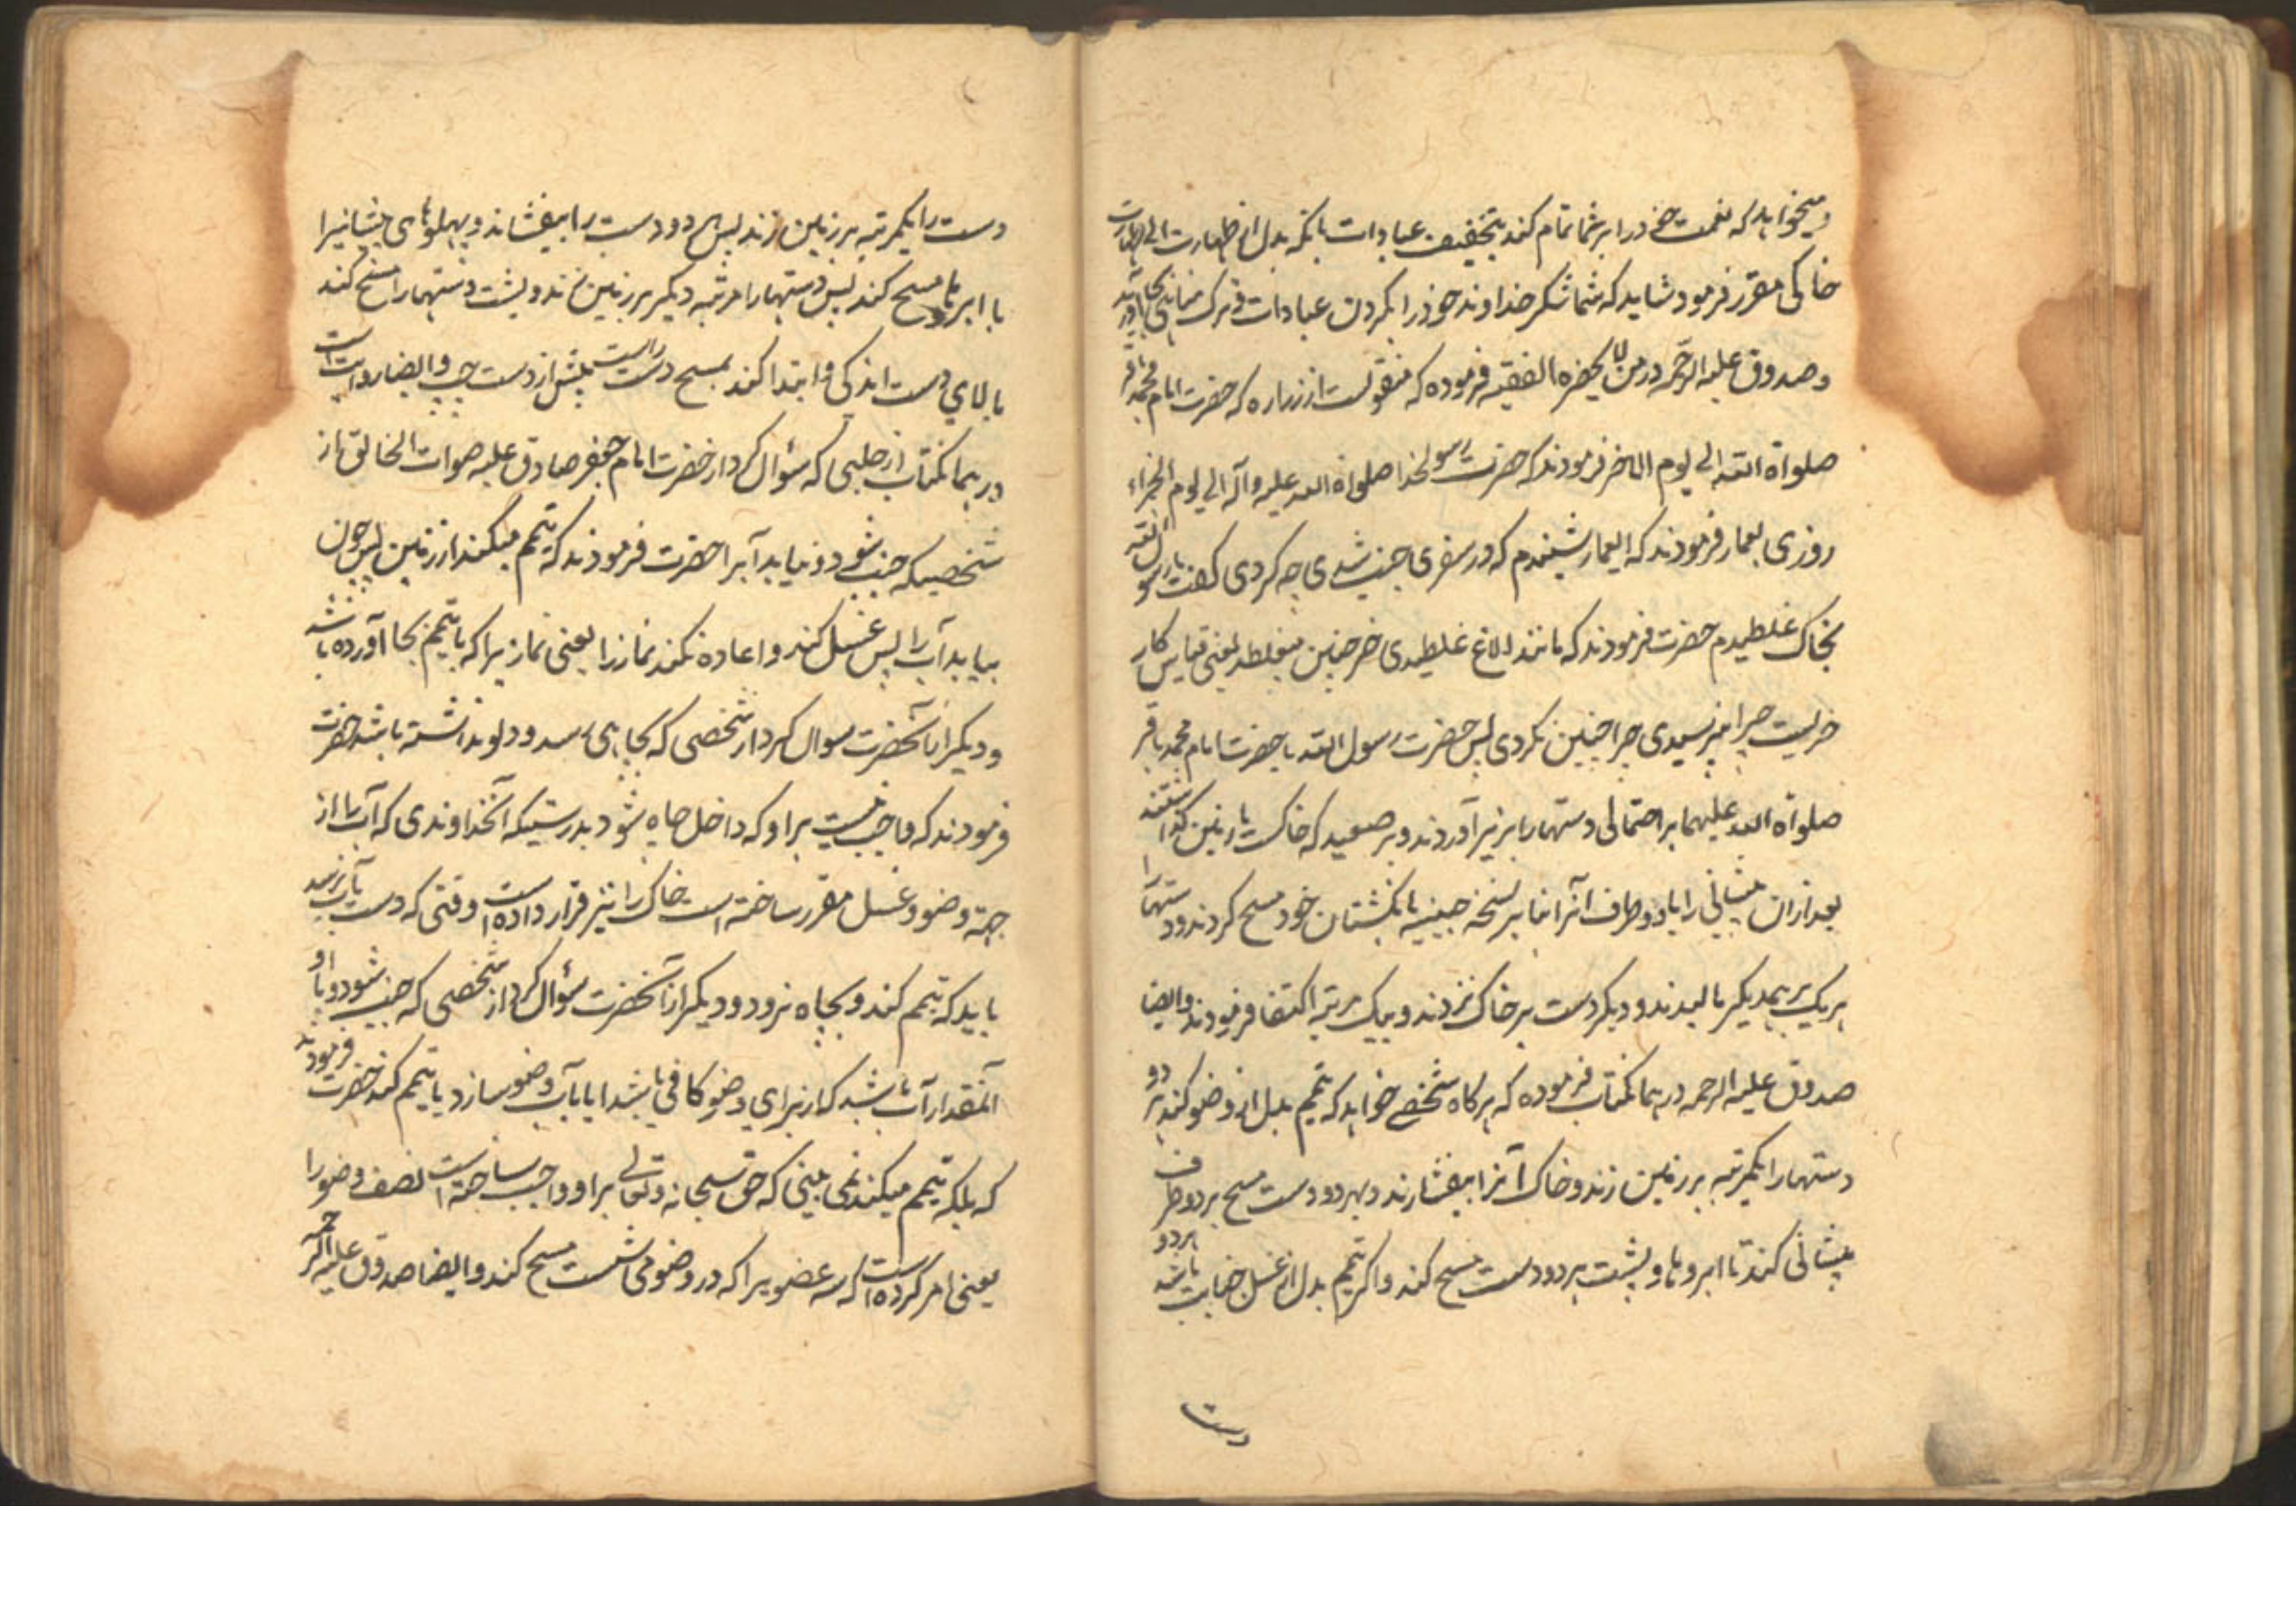 و میخواهد که نعمت خود را بر شما تمام کند بتخفیف عبادات بانکه بدل از طهارت آبی طهارت
خاکی مقرر فرمود شاید که شما شکر خداوند خود را بکردن عبادات و ترک مناهی بجا آورید
و صدوق علیه الرحمه در من لا یحضره الفقیه فرموده که منقولست از زراره که حضرت امام محمد باقر
صلواة الله الی یوم الاخر فرمودند که حضرت رسولخدا صلواة الله علیه و آله الی یوم الجزاء
روزی بعمار فرمودند که ایعمار شنیدم که در سفری جنب شدی چه کردی گفت یا رسول الله
بخاک غلطیدم حضرت فرمودند که مانند الاغ غلطیدی خر چنین میغلطد یعنی قیاس کار
خریست چرا نپرسیدی چرا چنین نکردی پس حضرت رسول الله یا حضرت امام محمد باقر
صلواة الله علیهما بر احتمالی دستها را بزیر آوردند و بر صعید که خاکست یا زمین گذاشتند
بعد از ان پیشانی را یا دو طرف آنرا بنا بر نسخه جبینیه بانگشتان خود مسح کردند و دستها را
هر یک بر یکدیگر مالیدند و دیگر دست بر خاک نزدند و بیک مرتبه اکتفا فرمودند و ایضا
صدوق علیه الرحمه در همانکتاب فرموده که هر کاه شخصی خواهد که تیمم بدل از وضو کند هر دو
دستها را یکمرتبه بر زمین زند و خاک آنرا بیفشارند و بهر دو دست مسح هر دو طرف
پیشانی کند تا ابروها و پشت هر دو دست مسح کند و اکر تیمم بدل از غسل جنابت باشد هر دو
دست
دست را یکمرتبه بر زمین زند پس هر دو دست را بیفشاند و پهلوهای پیشانیرا
با ابروها مسح کند پس دستها را مرتبه دیکر بر زمین زند و پشت دستها را مسح کند
بالای دست اندکی و ابتدا کند بمسح دست راست پیش از دست چپ و ایضا روایت است
در همانکتاب از حلبی که سؤال کرد از حضرت امام جعفر صادق علیه صلوات الخالق از
شخصیکه جنب شود و نیابد آبرا حضرت فرمودند که تیمم میکند از زمین پس چون
بیابد آب را پس غسل کند و اعاده نکند نماز را یعنی نماز یرا که با تیمم بجا آورده باشد
و دیکر از آنحضرت سوال کرد از شخصی که بچاهی رسد و دلو نداشته باشد حضرت
فرمودند که واجب نیست بر او که داخل چاه شود بدرستیکه آنخداوندی که آب را از
جهة وضو و غسل مقرر ساخته است خاک را نیز قرار داده است وقتی که دست بآب نرسد
باید که تیمم کند و بچاه نرود و دیکر از آنحضرت سؤال کرد از شخصی که جنب شود و با او
آنمقدار آب باشد که از برای وضو کافی باشد ایا بآب وضو سازد یا تیمم کند حضرت فرمودند
که بلکه تیمم میکند نمی بینی که حق سبحانه و تعالی بر او واجب ساخته است نصف وضو را
یعنی امر کرده است که سه عضویرا که در وضو می شست مسح کند و ایضا صدوق علیه الرحمه